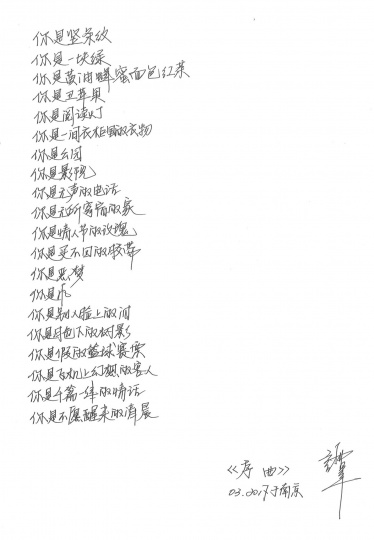 你是坚条纹
你是一块绿
你是黄油蜂蜜面包红茶
你是丑苹果
你是阅读灯
你是一间衣柜的衣物
你是公园
你是影院
你是无声的电话
你是无所寄宿的家
你是情人节的玫瑰
你是买不回的胶带
你是恶梦
你是
你是别人脸上的
你是月色下的树影
你是假的篮球赛票
你是手机上幻想的客人
你是千篇一律的情话
你是不愿醒来的清晨
《序曲》
03.2017于南京